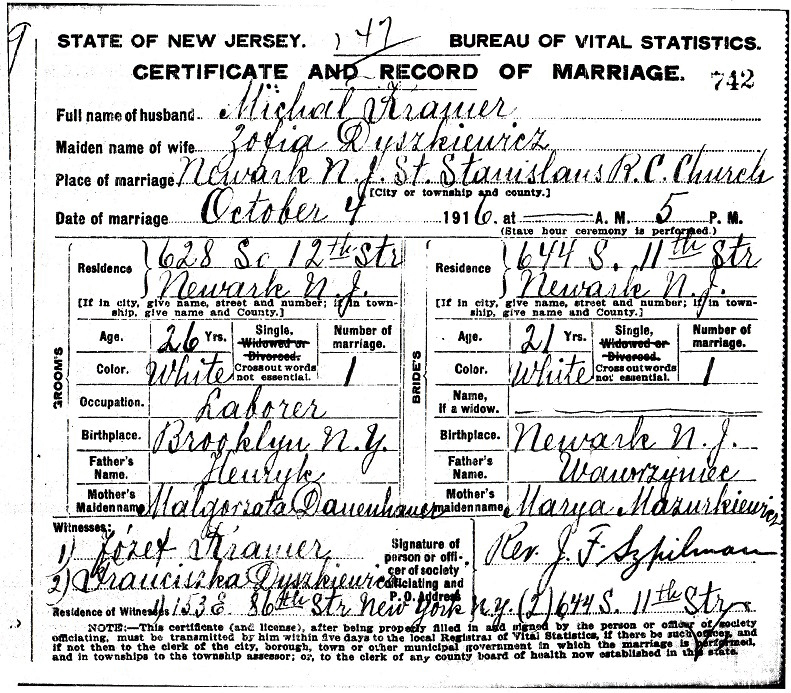 STATE OF NEW JERSEY. 147 BUREAU OF VITAL STATISTICS.
CERTIFICATE AND RECORD OF MARRIAGE. 742
Full name of husband Michal Kramer
Maiden name of wife Zofia Dyszkiewicz
Place of marriage Newark N.J. St. Stanislaus R.C. Church
[City or township and county.]
Date of marriage October 4 1916. at A. M. 5 P. M.
(State hour ceremony is performed.)
GROOM'S
Residence 628 So 12th Str
Newark N. J.
[If in city, give name, street and number; if in town-
ship, give name and County.]
Age. 26 Yrs. Single, Widowed or Divorced. Cross out words not essential. Number of marriage. 1
Color. White
Occupation. Laborer
Birthplace. Brooklyn N.Y.
Father's Name. Henryk
Mother's Maiden name Malgorzata Dauenhauer
BRIDE'S
Residence 644 S. 11th Str
Newark N. J.
[If in city, give name, street and number; if in town-
ship, give name and County.]
Age. 21 Yrs. Single, Widowed or Divorced. Cross out words not essential. Number of marriage. 1
Color. White
Name, If a widow.
Birthplace. Newark N. J.
Father's Name. Wawrzyniec
Mother's maiden name Marya Mazurkiewicz
Witnesses:
1) Józef Kramer
2) Franciszka Dyszkiewicz
Signature of person or officer of society officiating and P. O. Address
Rev. J. F. Szpilman
Residence of Witnesses 1) 153 E. 86th Str New York N.Y. (2) 644 S. 11th Str
NOTE:—This certificate (and license), after being properly filled in and signed by the person or officer of society
officiating, must be transmitted by him within five days to the local Registrar of Vital Statistics, if there be such officer, and
if not then to the clerk of the city, borough, town or other municipal government in which the marriage is performed,
and in townships to the township assessor; or, to the clerk of any county board of health now established in this state.